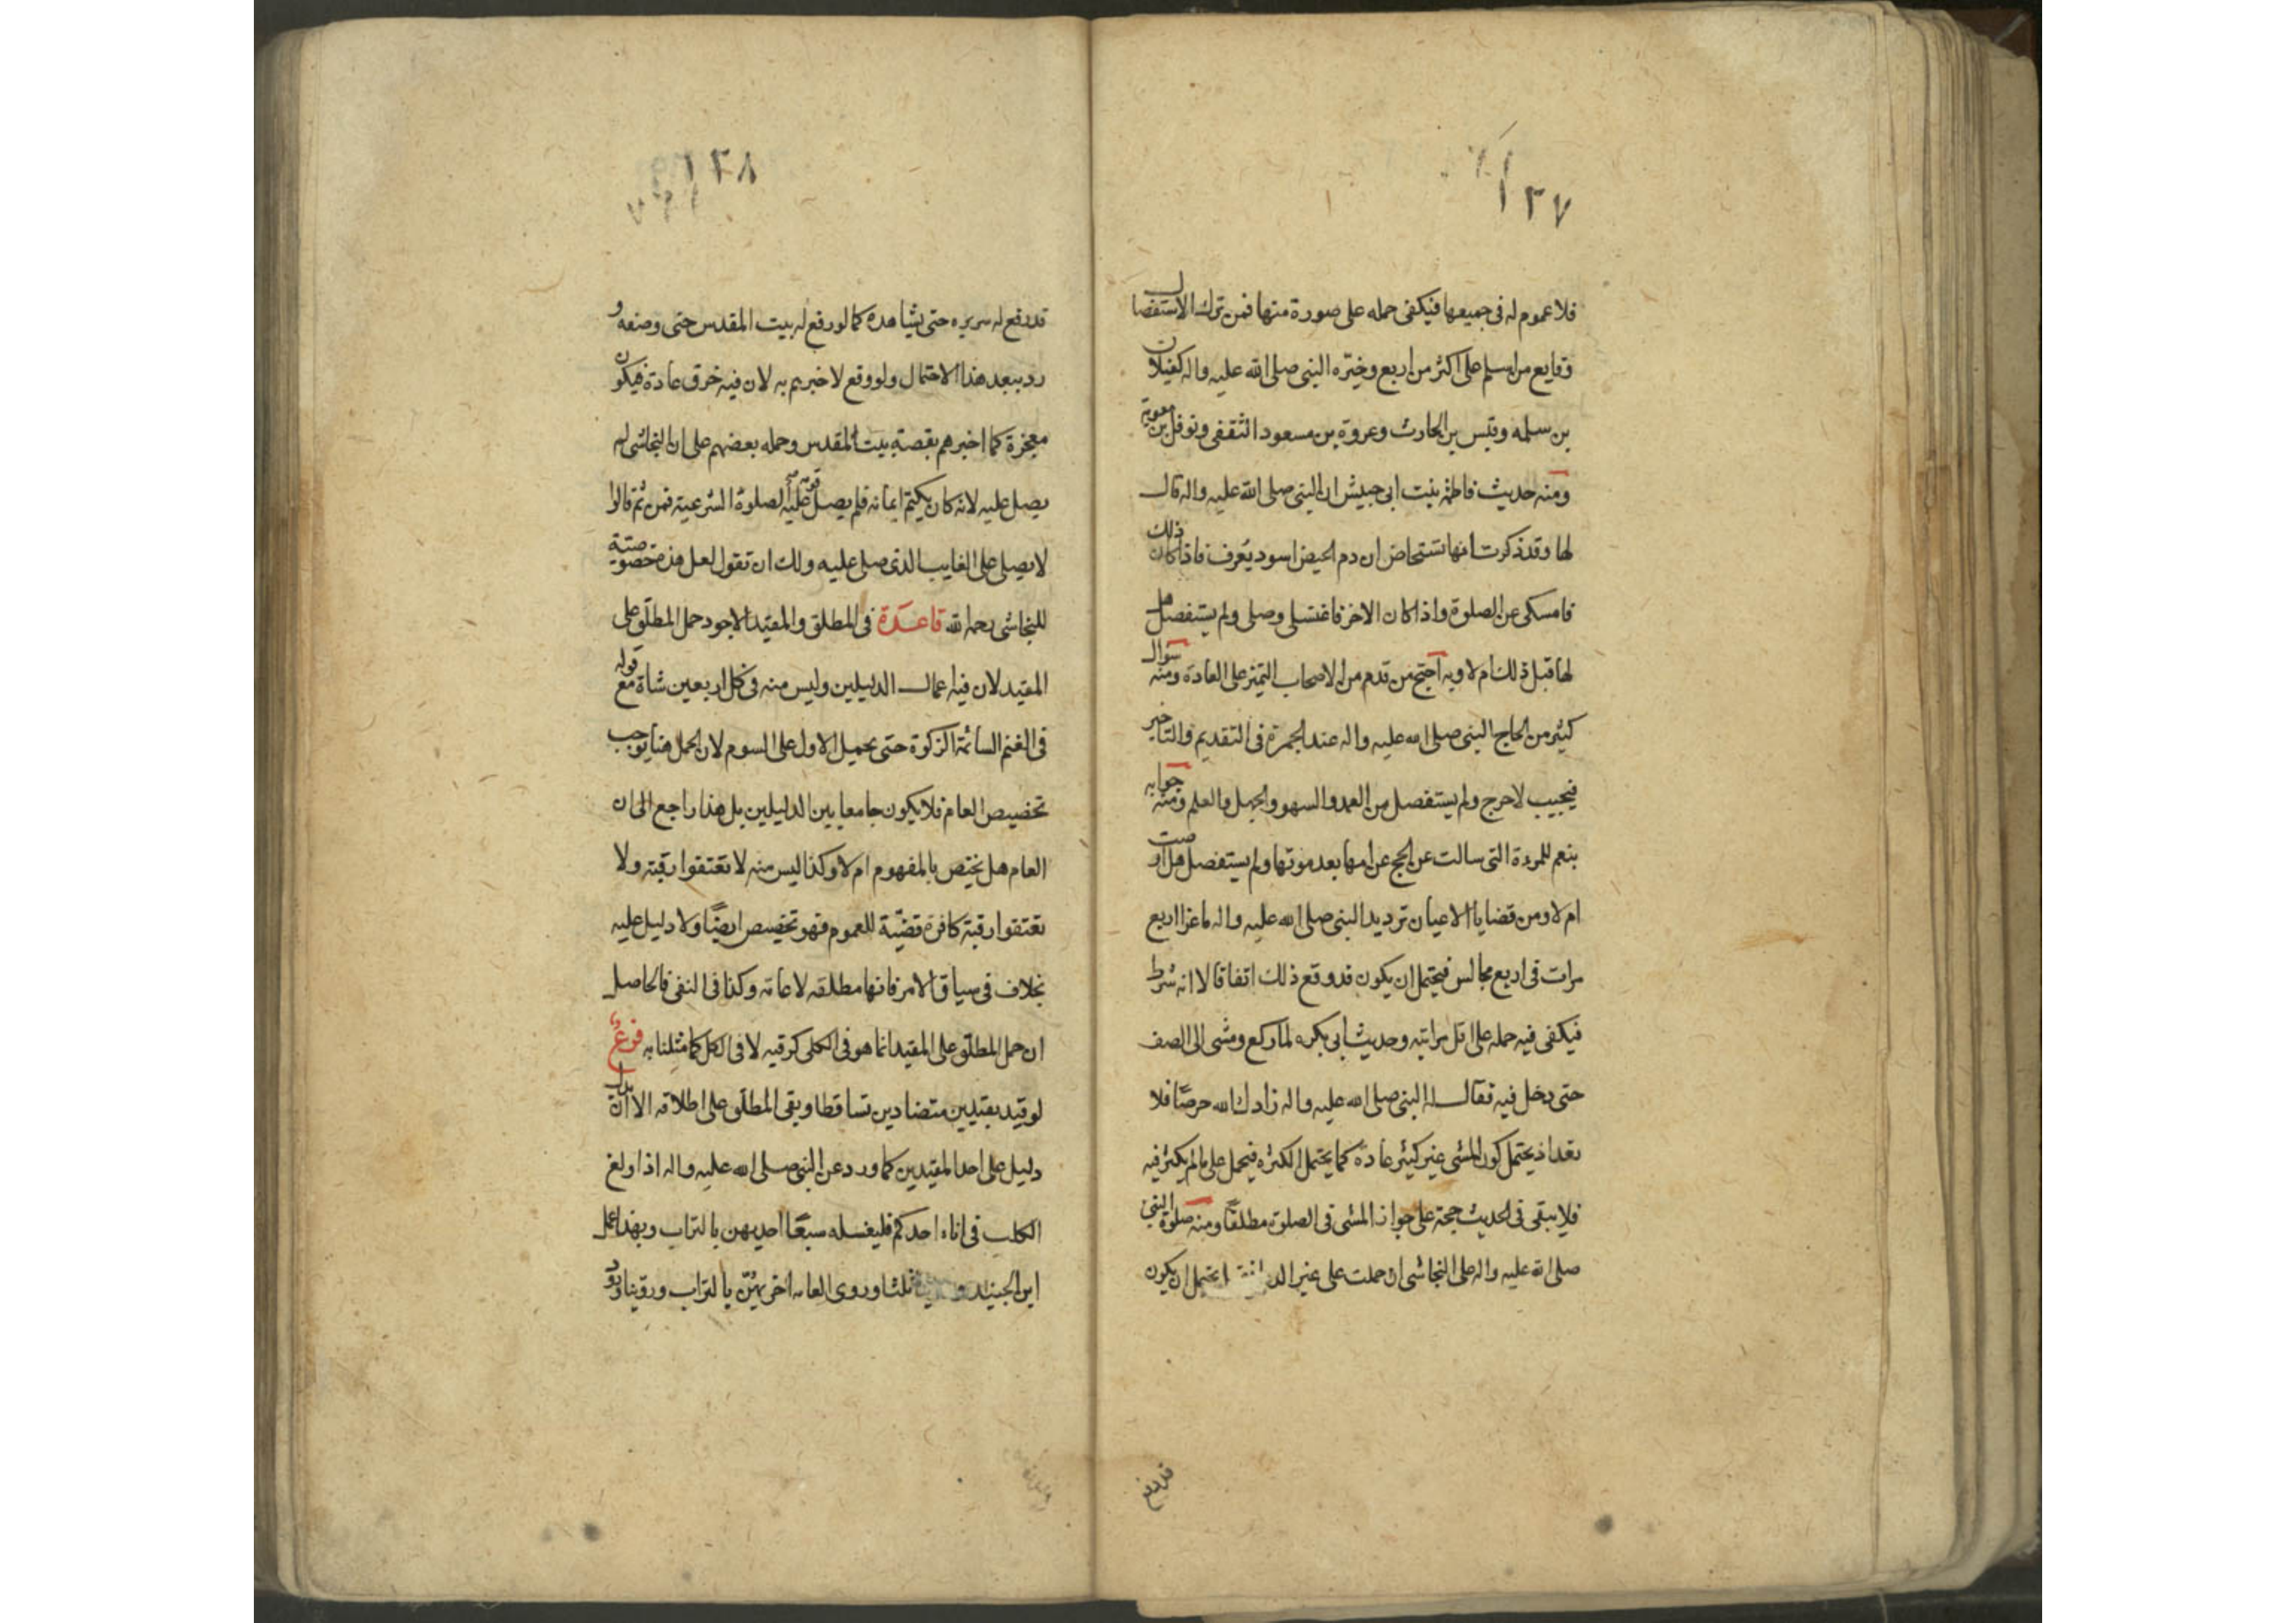 ١٢٧
فلا عموم له فى جميعها فيكفى حمله على صورة منها فمن ترك الاستفصال
وقايع من اسلم على اكثر من اربع وخيّره النبى صلى الله عليه واله كغيلان
بن سلمه وقيس بن الحارث وعروة بن مسعود الثقفى ونوفل بن معوية
ومنه حديث فاطمة بنت ابى حبيش ان النبى صلى الله عليه واله قال
لها وقد ذكرت انها تستحاض ان دم الحيض اسود يعرف فاذا كان ذلك
فامسكى عن الصلوة واذا كان الاخر فاغتسلى وصلى ولم يستفصل هل
لها قبل ذلك ام لا وبه احتج من قدم من الاصحاب التميز على العادة ومنه سوال
كثير من الحاج النبى صلى الله عليه واله عند الجمرة فى التقديم والتاخير
فيجيب لا حرج ولم يستفصل من العمد والسهو والجهل والعلم ومنه جوابه
بنعم للمرءة التى سالت عن الحج عن امها بعد موتها ولم يستفصل هل اوصت
ام لا ومن قضايا الاعيان ترديد النبى صلى الله عليه واله ماعزا اربع
مرات فى اربع مجالس فيحتمل ان يكون قد وقع ذلك اتفاقا لا انه شرط
فيكفى فيه حمله على اقل مراتبه وحديث ابى بكره لما ركع ومشى الى الصف
حتى دخل فيه فقال له النبى صلى الله عليه واله زادك الله حرصًا فلا
تعد اذ يحتمل كون المشى غير كثير عادة كما يحتمل الكثره فيحمل على ما لم يكثر فيه
فلا يبقى فى الحديث حجة على جواز المشى فى الصلوة مطلقًا ومنه صلوة النبى
صلى الله عليه واله على النجاشى ان حملت على غير الد يحتمل ان يكون
قد رفع
١٢٨
قد رفع له سريره حتى يشاهده كما لو رفع له بيت المقدس حتى وصفه و
رد ببعد هذا الاحتمال ولو وقع لاخبرهم به لان فيه خرق عادة فيكون
معجزة كما اخبرهم بقصة بيت المقدس وحمله بعضهم على ان النجاشى لم
يصل عليه لانه كان يكتم ايمانه فلم يصل عليه قومه الصلوة الشرعية فمن ثم قالوا
لا يصلى على الغايب الذى صلى عليه ولك ان تقول لعل هذه خصوصيّة
للنجاشى رحمه الله قاعدة فى المطلق والمقيد الاجود حمل المطلق على
المقيد لان فيه اعمال الدليلين وليس منه فى كل اربعين شاة مع قوله
فى الغنم السائمة الزكوة حتى يحمل الاول على السوم لان الحمل هنا يوجب
تخصيص العام فلا يكون جامعا بين الدليلين بل هذا راجع الى ان
العام هل يختص بالمفهوم ام لا وكذا ليس منه لا تعتقوا رقبة ولا
تعتقوا رقبة كافرة قضيّة للعموم فهو تخصيص ايضًا ولا دليل عليه
بخلاف فى سياق الامر فانها مطلقه لا عامه وكذا فى النفى فالحاصل
ان حمل المطلق على المقيد انما هو فى الكلى كرقبه لا فى الكل كما مثلنا به فرعٌ
لو قيد بقيدين متضادين تساقطا وبقى المطلق على اطلاقه الا ان يدل
دليل على احد المقيدين كما ورد عن النبى صلى الله عليه واله اذا ولغ
الكلب فى اناء احدكم فليغسله سبعًا احديهن بالتراب وبهذا عمل
ابن الجنيد و ثلثا وروى العامه اخريهنّ بالتراب وروينا